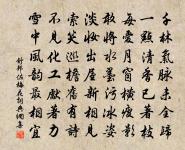 千林氣脉未全歸
一點清香已著枝
每愛月窗橫瘦影
敢將水墨冰姿
淡妝出屋新
索笑巡檐舊有詩
不見化工著力
雪中風韻最相宜
舒邦佐梅花詞典網集